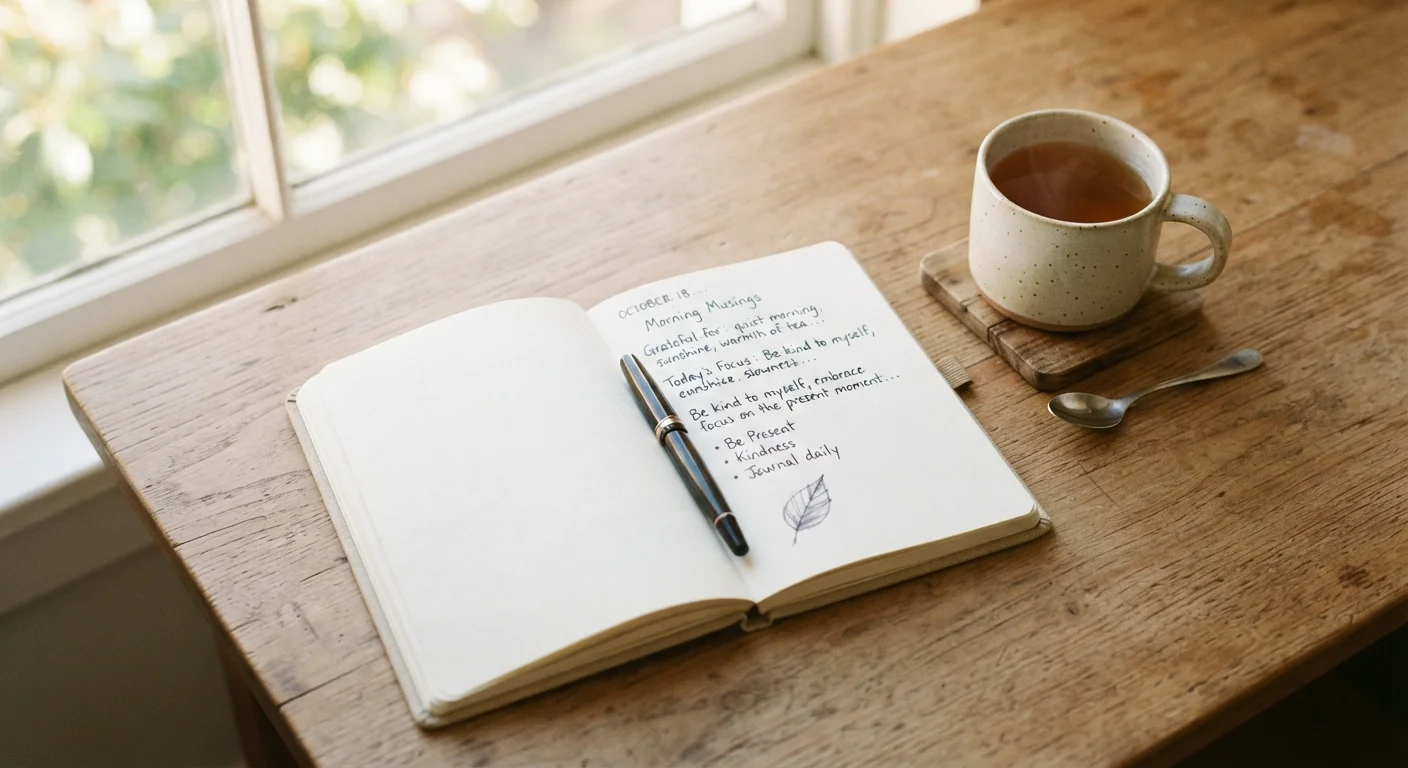 OCTOBER 18...
Morning Musings
Grateful for: quiet morning,
sunshine, warmth of tea...
Today's Focus: Be kind to myself,
slowness...
Be kind to myself, embrace
focus on the present moment...
• Be Present
• Kindness
• Journal daily